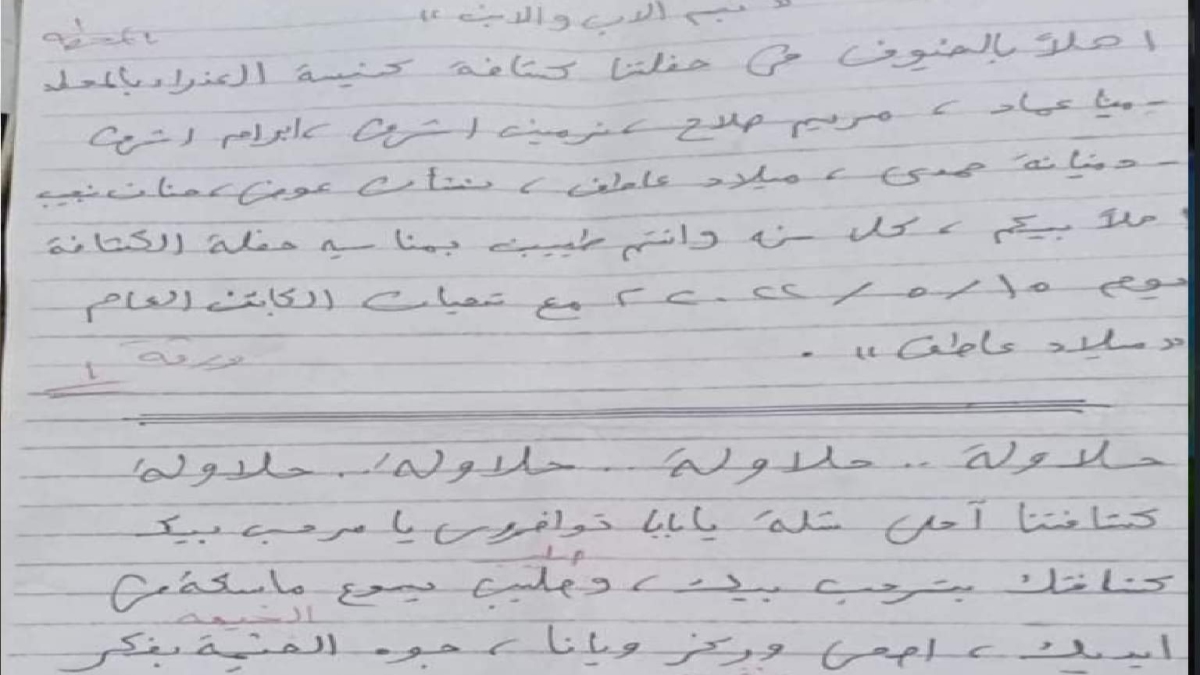 بسم الاب والابن "
بالمحطه
اهلاً بالضيوف في حفلتنا كشافة كنيسة العذراء بالمحله
- مينا عماد ، مريم صلاح ، نرمين اشرف ، ابرام اشرف
- دميانة حمدى ، ميلاد عاطف ، نشأت عوض ، حنان نجيب
اهلاً بيكم ، كل سنه وانتم طيبين بمناسبه حفلة الكشافة
يوم ١٥ / ٥ / ٢٠٢٢ مع تحيات الكابتن العام
" ميلاد عاطف " .
ورقة ١
حلاولة .. حلاولة .. حلاولة .. حلاولة
كشافتنا آحلى شلة يا بابا توافروس يا مرحب بيك
كشافتك بترحب بيك ، وصليب يسوع ماسكة في
الخيمه
ايديك ، اصحى وركز ويانا ، جوه الخيمة بفكر